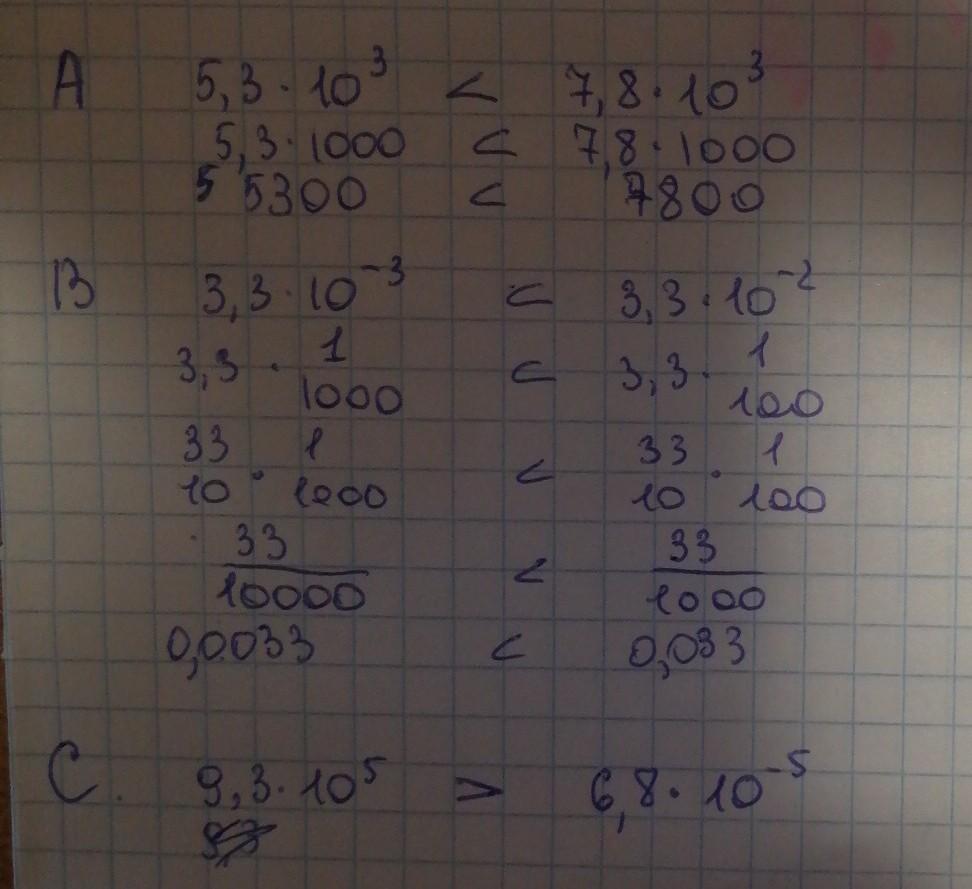 A 5,3 · 10³ < 7,8 · 10³
5,3 · 1000 < 7,8 · 1000
5 5300 < 7800
B 3,3 · 10⁻³ < 3,3 · 10⁻²
3,3 · 1/1000 < 3,3 · 1/100
33/10 · 1/1000 < 33/10 · 1/100
33/10000 < 33/1000
0,0033 < 0,033
C. 9,3 · 10⁵ > 6,8 · 10⁻⁵